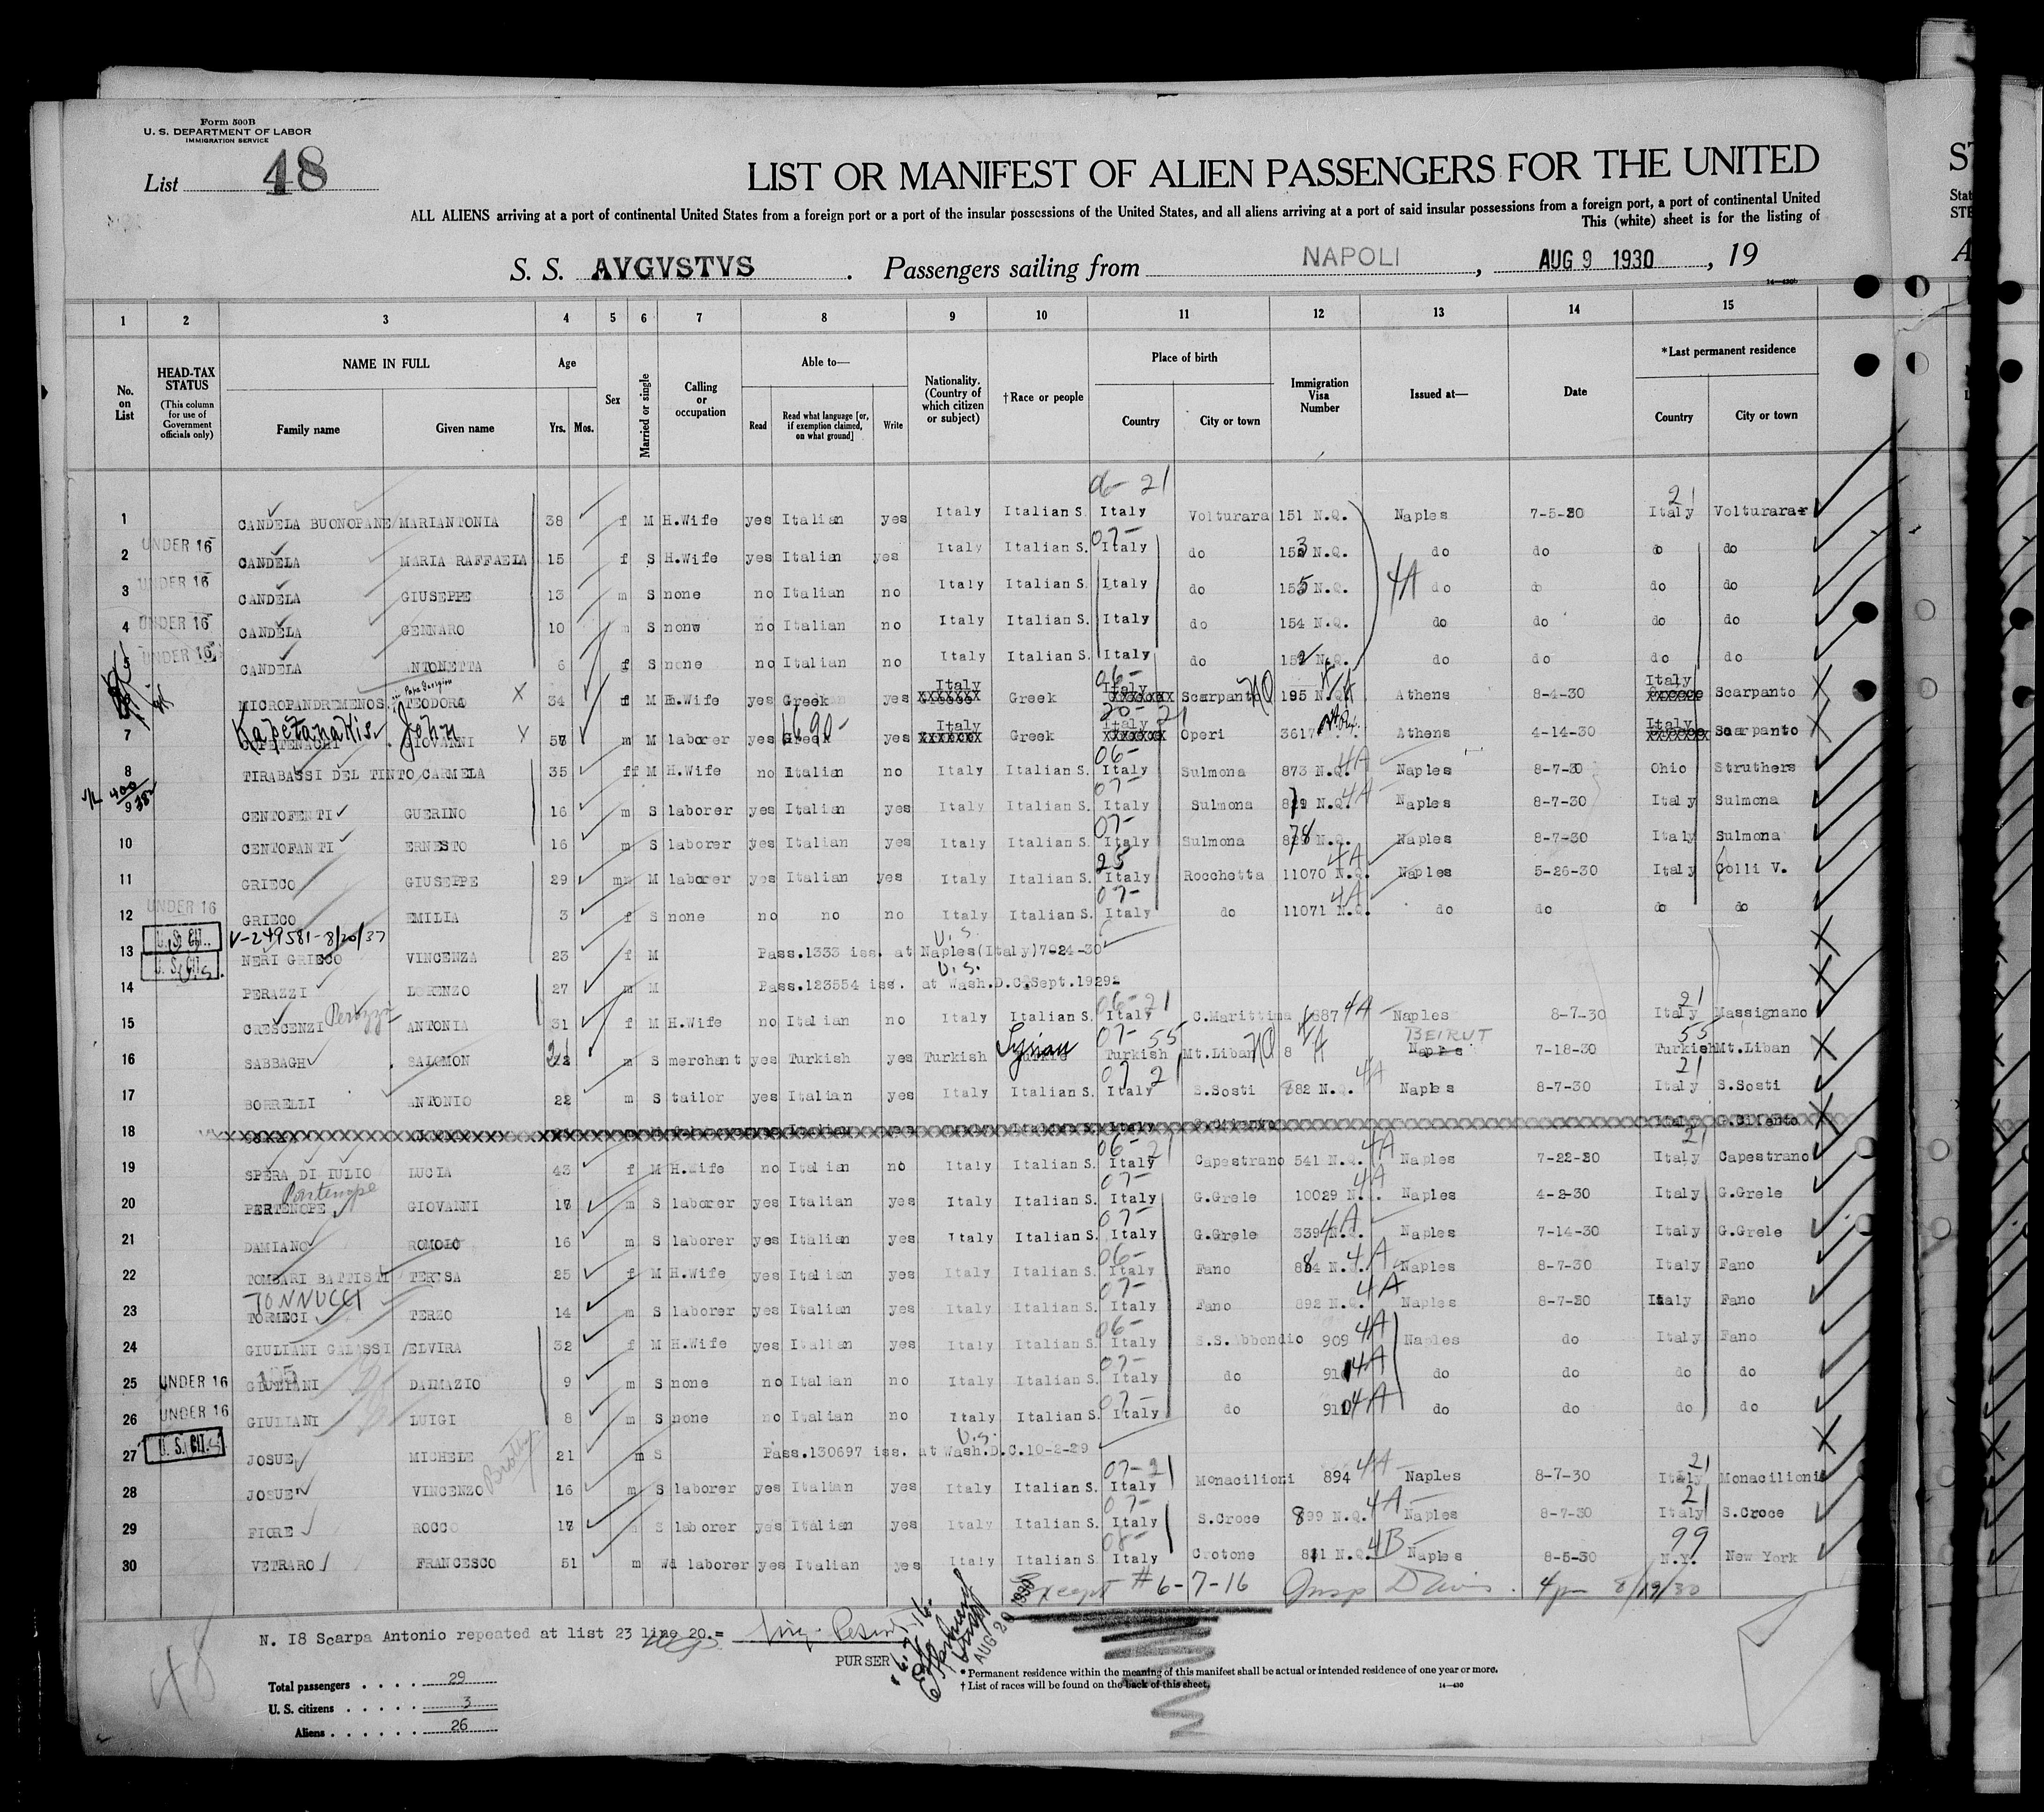 Form 500B
U. S. DEPARTMENT OF LABOR
IMMIGRATION SERVICE
List 48
LIST OR MANIFEST OF ALIEN PASSENGERS FOR THE UNITED
ALL ALIENS arriving at a port of continental United States from a foreign port or a port of the insular possessions of the United States, and all aliens arriving at a port of said insular possessions from a foreign port, a port of continental United
This (white) sheet is for the listing of
S. S. AVGVSTVS . Passengers sailing from NAPOLI , AUG 9 1930 , 19
14—430b
1 2 3 4 5 6 7 8 9 10 11 12 13 14 15
No. on List
HEAD-TAX STATUS (This column for use of Government officials only)
NAME IN FULL Family name Given name
Age Yrs. Mos.
Sex
Married or single
Calling or occupation
Able to— Read Read what language [or, if exemption claimed, on what ground] Write
Nationality. (Country of which citizen or subject)
†Race or people
Place of birth Country City or town
Immigration Visa Number
Issued at—
Date
*Last permanent residence Country City or town
06- 21 21
1 CANDELA BUONOPANE MARIANTONIA 38 f M H.Wife yes Italian yes Italy Italian S. Italy Volturara 151 N.Q. Naples 7-5-30 Italy Volturara
2 UNDER 16 CANDELA MARIA RAFFAELA 15 f S H.Wife yes Italian yes Italy Italian S. 07- Italy do 153 N.Q. do do do do
3 UNDER 16 CANDELA GIUSEPPE 13 m S none no Italian no Italy Italian S. Italy do 155 N.Q. 4A do do do do
4 UNDER 16 CANDELA GENNARO 10 m S nonw no Italian no Italy Italian S. Italy do 154 N.Q. do do do do
UNDER 16 CANDELA ANTONETTA 6 f S none no Italian no Italy Italian S. Italy do 152 N.Q. do do do do
MICROPANDREMENOS TEODORA X 34 f M H.Wife yes Greek yes Italy Greek 06- Italy Scarpanto 195 N.Q. Athens 8-4-30 Italy Scarpanto
7 Kapetanakis John GIOVANNI 58 m M laborer yes Greek yes Italy Greek 20- 21 Italy Operi 3617 Athens 4-14-30 Italy Scarpanto
8 TIRABASSI DEL TINTO CARMELA 35 f M H.Wife no Italian no Italy Italian S. 06- Italy Sulmona 873 N.Q. 4A Naples 8-7-30 Ohio Struthers
9 CENTOFENTI GUERINO 16 m S laborer yes Italian yes Italy Italian S. 07- Italy Sulmona N.Q. 4A Naples 8-7-30 Italy Sulmona
10 CENTOFANTI ERNESTO 16 m S laborer yes Italian yes Italy Italian S. 07- Italy Sulmona N.Q. Naples 8-7-30 Italy Sulmona
11 GRIECO GIUSEPPE 29 m M laborer yes Italian yes Italy Italian S. 25 Italy Rocchetta 11070 N.Q. 4A Naples 5-26-30 Italy Colli V.
12 UNDER 16 GRIECO EMILIA 3 f S none no no no Italy Italian S. 07- Italy do 11071 N.Q. 4A do do do do
U. S. CIT. V-249581-8/20/37 U.S.
13 NERI GRIECO VINCENZA 23 f M Pass.1333 iss. at Naples(Italy)7-24-30
U. S. CIT. U.S. U.S.
14 PERAZZI LORENZO 27 m M Pass.123554 iss. at Wash.D.C.Sept.1929
15 CRESCENZI Perazzi ANTONIA 31 f M H.Wife no Italian no Italy Italian S. 06-21 Italy C.Marittima 887 4A Naples 8-7-30 21 Italy Massignano
16 SABBAGH SALOMON m S merchant yes Turkish yes Turkish Syrian 07- 55 Turkish Mt.Liban 8 BEIRUT Naples 7-18-30 55 Turkish Mt.Liban
17 BORRELLI ANTONIO 22 m S tailor yes Italian yes Italy Italian S. 07 21 Italy S.Sosti 882 N.Q. 4A Naples 8-7-30 21 Italy S.Sosti
18
19 SPERA DI IULIO LUCIA 43 f M H.Wife no Italian no Italy Italian S. 06-21 Italy Capestrano 541 N.Q. 4A Naples 7-22-30 21 Italy Capestrano
20 Partenope PERTENOPE GIOVANNI m S laborer yes Italian yes Italy Italian S. 07- Italy G.Grele 10029 N. 4A Naples 4-2-30 Italy G.Grele
21 DAMIANO ROMOLO 16 m S laborer yes Italian yes Italy Italian S. 07- Italy G.Grele 339 N.Q. 4A Naples 7-14-30 Italy G.Grele
22 TOMBARI BATTISTI TERESA 25 f M H.Wife yes Italian yes Italy Italian S. 06- Italy Fano 884 N.Q. 4A Naples 8-7-30 Italy Fano
23 TONNUCCI TORMECI TERZO 14 m S laborer yes Italian yes Italy Italian S. 07- Italy Fano 892 N.Q. 4A Naples 8-7-30 Italy Fano
24 GIULIANI GALASSI ELVIRA 32 f M H.Wife yes Italian yes Italy Italian S. 06- Italy S.S.Abbondio 909 4A Naples do Italy Fano
25 UNDER 16 GIULIANI DALMAZIO 9 m S none no Italian no Italy Italian S. 07- Italy do 4A do do do do
26 UNDER 16 GIULIANI LUIGI 8 m S none no Italian no Italy Italian S. 07- Italy do 4A do do do do
27 U. S. CIT. JOSUE MICHELE 21 m S Pass.130697 iss. at Wash.D.C.10-2-29 U.S.
28 JOSUE VINCENZO Brother 16 m S laborer yes Italian yes Italy Italian S. 07-21 Italy Monacilioni 894 4A Naples 8-7-30 21 Italy Monacilioni
29 FIORE ROCCO m S laborer yes Italian yes Italy Italian S. 07- Italy S.Croce 899 N.Q. 4A Naples 8-7-30 21 Italy S.Croce
30 VETRARO FRANCESCO 51 m Wd laborer yes Italian yes Italy Italian S. 08- Italy Crotone 841 N.Q. 4B Naples 8-5-30 99 N.Y. New York
Except # 6-7-16 Insp Davis. 4pm 8/19/30
N. I8 Scarpa Antonio repeated at list 23 line 20.=
PURSER
AUG 20 1930
48
Total passengers . . . . 29
U. S. citizens . . . . . 3
Aliens . . . . . . 26
* Permanent residence within the meaning of this manifest shall be actual or intended residence of one year or more.
† List of races will be found on the back of this sheet.
14—430